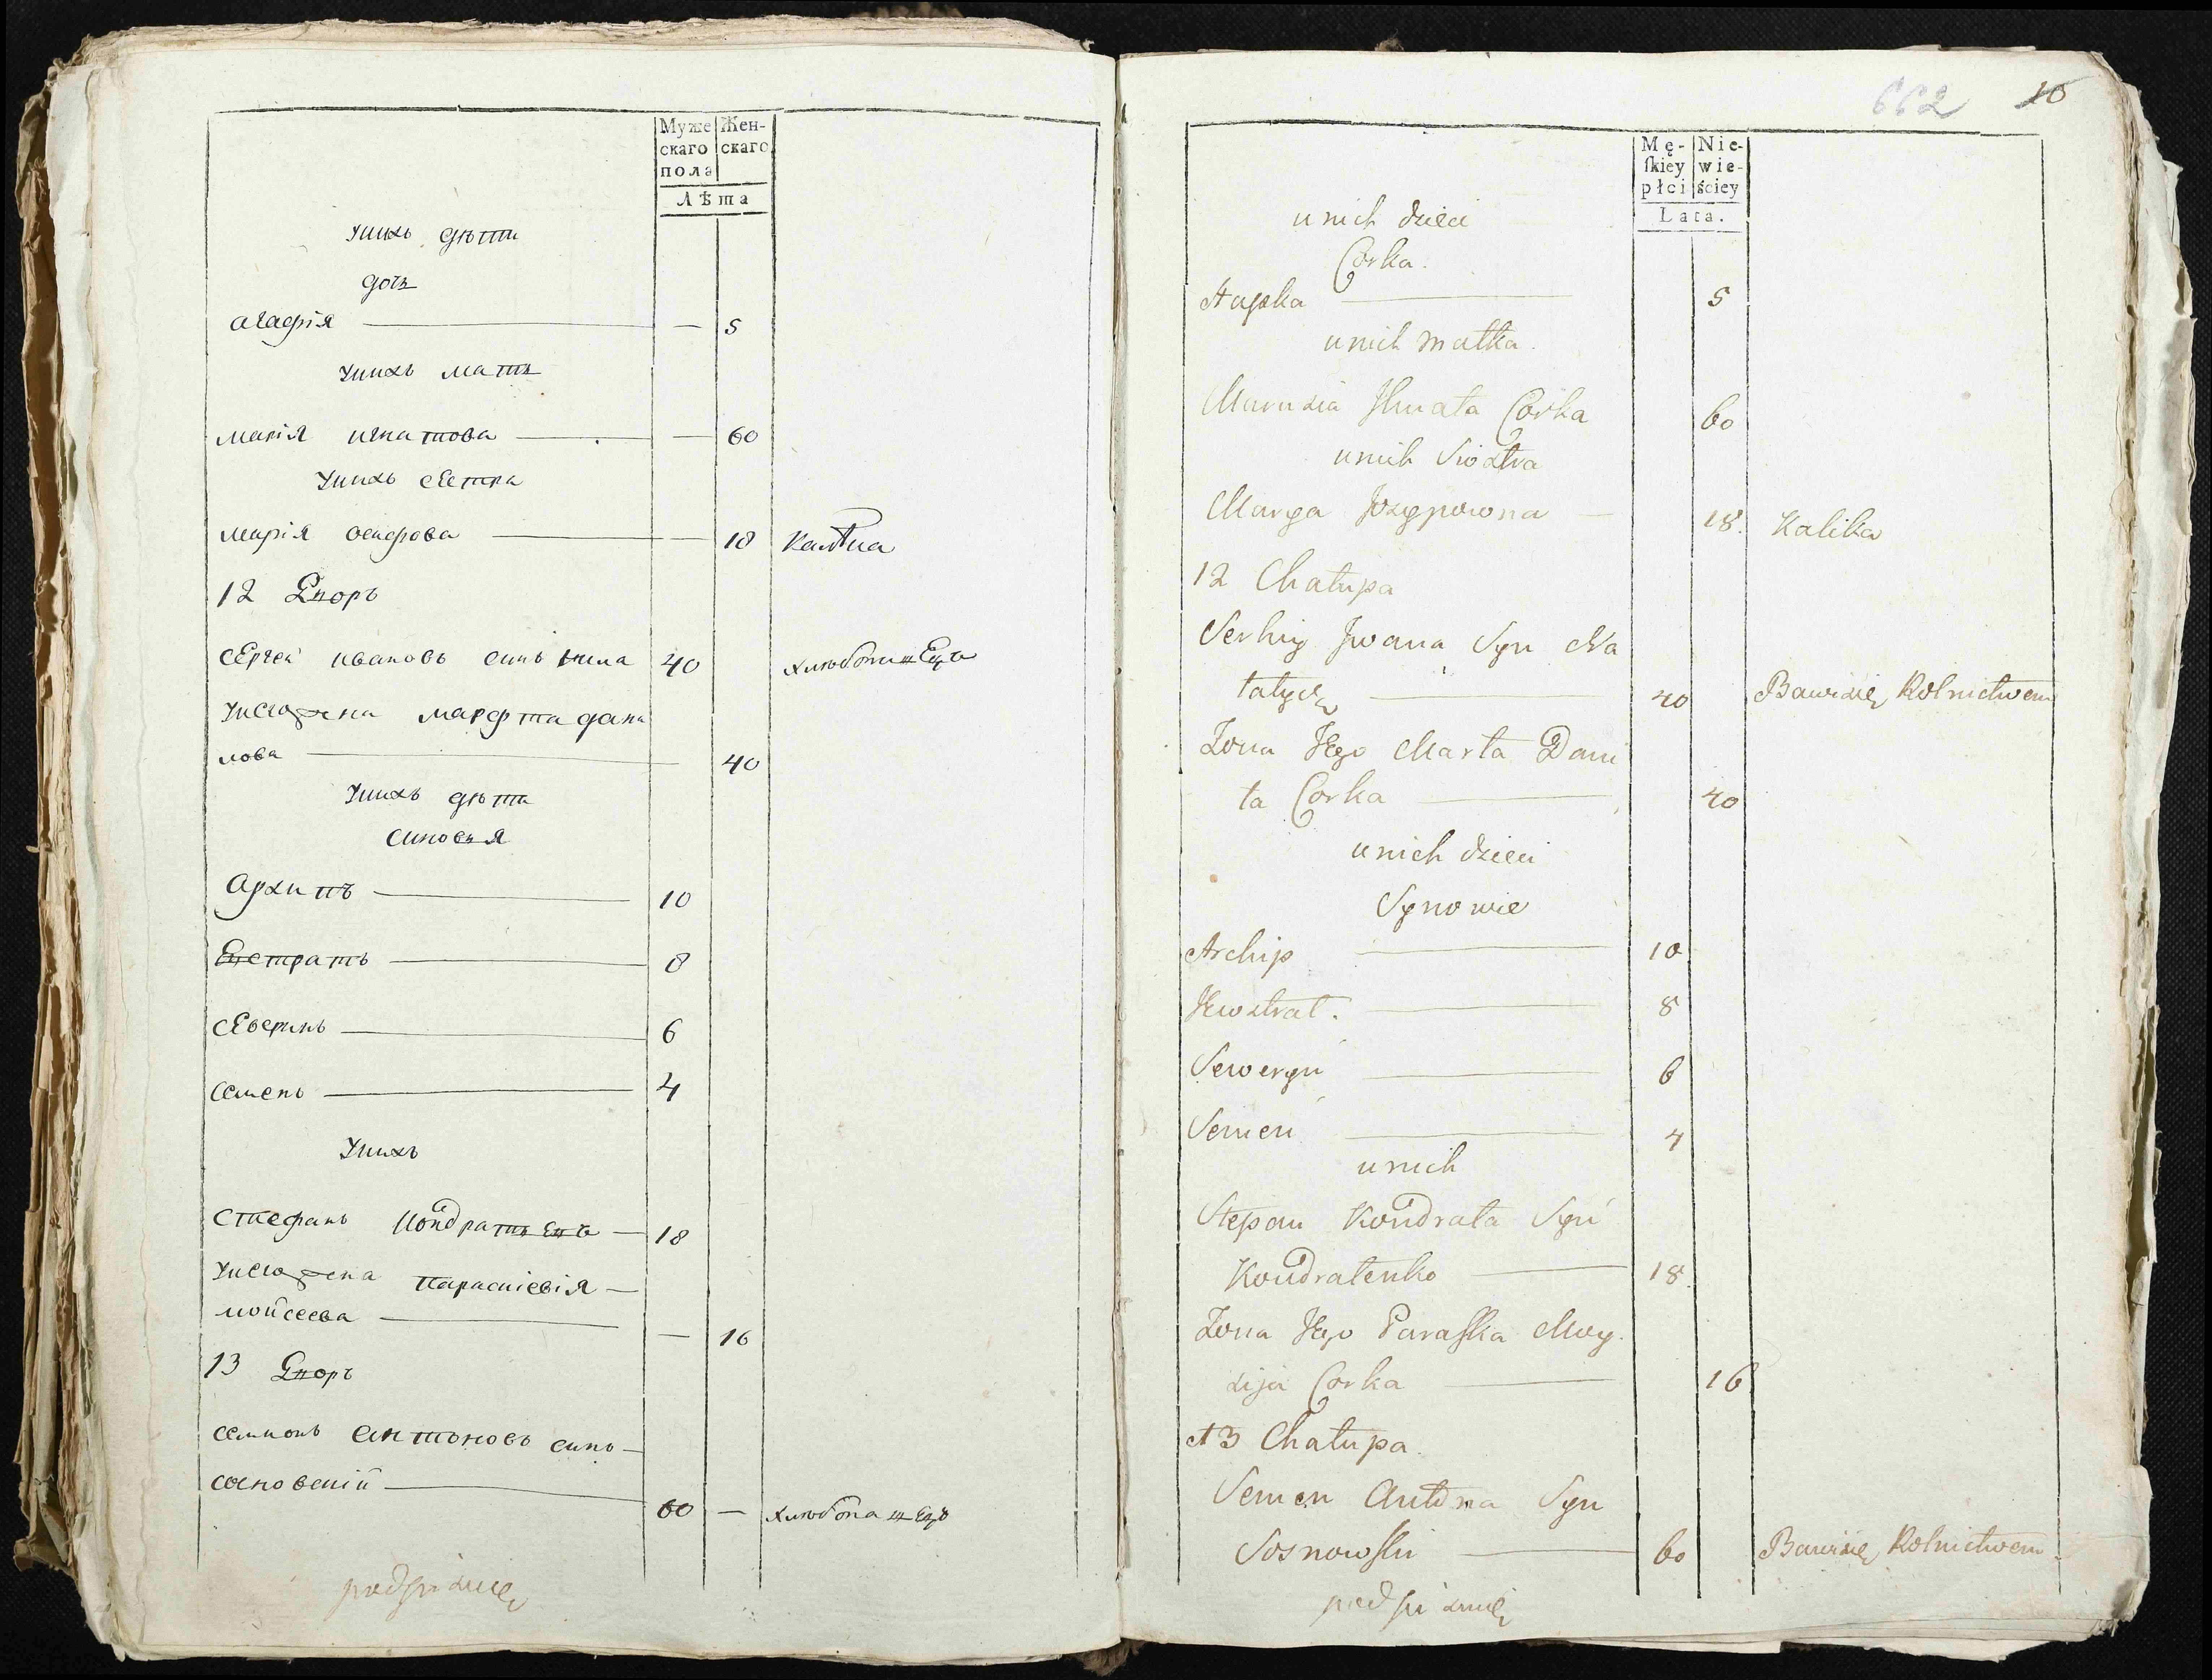 Муже
скаго
пола
Жен-
скаго
Лѣта
унихъ дѣти
дочь
агафія — 5
унихъ мать
марія игнатова — 60
унихъ сестра
марія осифова — 18 Калѣка
12 Дворъ
сергей ивановъ синъ 40 хлебопашецъ
унегожена марфта дани
лова 40
унихъ дѣти
синовья
архипъ 10
Евстратъ 8
северинъ 6
семенъ 4
унихъ
стиефанъ кондратьевъ — 18
унегожена параскіевія —
мойсеева — 16
13 Дворъ
семионъ антоновъ синъ —
сосновскій
60 — хлебопашецъ
podpisuię
662 10
Mę-
ſkiey
płci
Nie-
wie-
ściey
Lata.
u nich dzieci
Corka.
Hapka 5
u nich matka.
Maruzia Ihnata Corka 60
u nich Siostra
Marya Jozypowna — 18. Kalika
12 Chałupa
Serhiy Jwana Syn
40 Bawi się Rolnictwem
Zona Jego Marta Dani
ła Corka 40
u nich dzieci
Synowie
Archip 10
Jewstrat. 8
Seweryn 6
Semen 4
u nich
Stepan Kondrata Syn
Kondratenko 18.
Zona Jego Paraſka Moy.
zija Corka 16
13 Chałupa.
Semen Antona Syn
Sosnowſki 60 Bawi się Rolnictwem
podpisuię